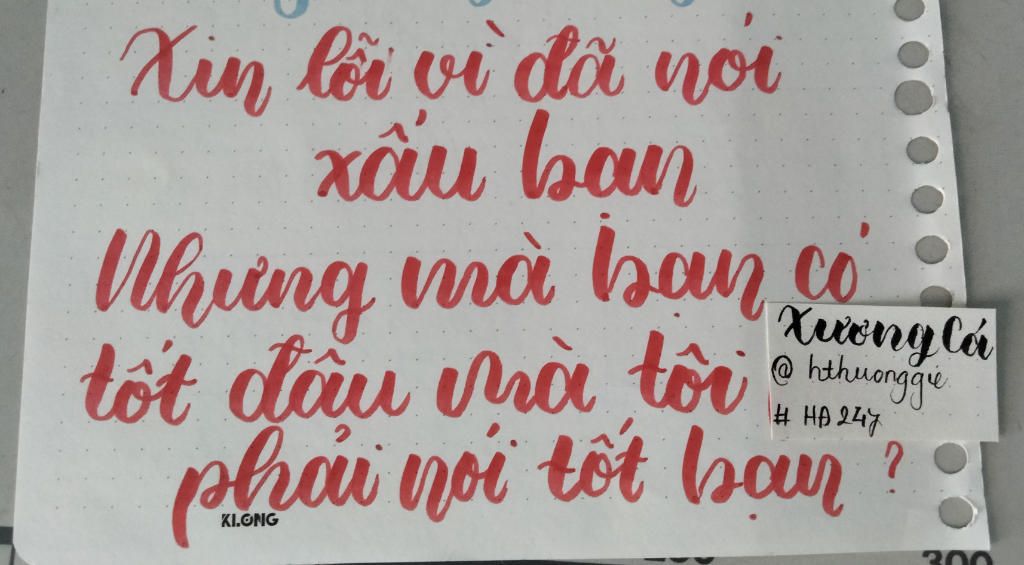 Xin lỗi vì đã nói
xấu bạn
Nhưng mà bạn có
tốt đâu mà tôi
phải nói tốt bạn ?
Xương Cá
@ hthuonggie.
# HA247
KLONG
300